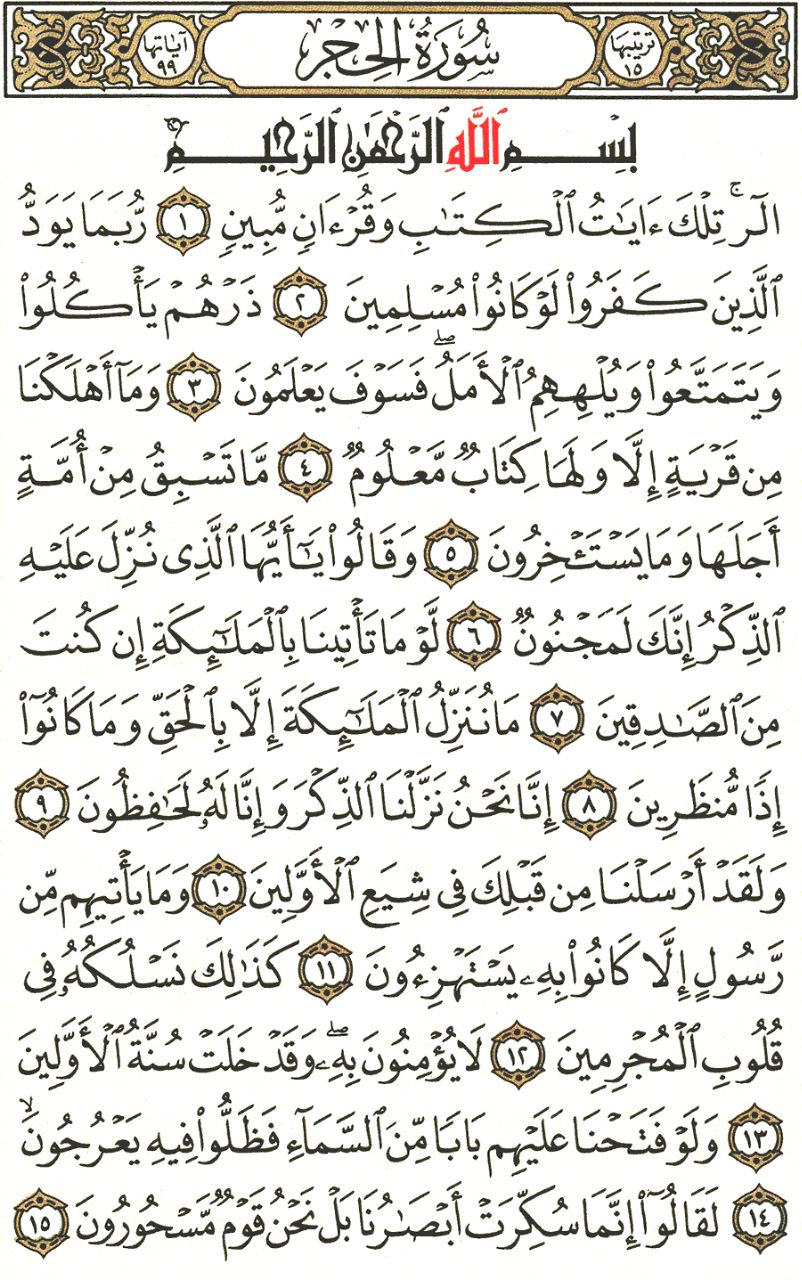 ترتيبها ١٥ سُورَةُ الحِجرِ آياتها ٩٩
بِسۡمِ ٱللَّهِ ٱلرَّحۡمَٰنِ ٱلرَّحِيمِ
الٓرۚ تِلۡكَ ءَايَٰتُ ٱلۡكِتَٰبِ وَقُرۡءَانٖ مُّبِينٖ ١ رُّبَمَا يَوَدُّ
ٱلَّذِينَ كَفَرُواْ لَوۡ كَانُواْ مُسۡلِمِينَ ٢ ذَرۡهُمۡ يَأۡكُلُواْ
وَيَتَمَتَّعُواْ وَيُلۡهِهِمُ ٱلۡأَمَلُۖ فَسَوۡفَ يَعۡلَمُونَ ٣ وَمَآ أَهۡلَكۡنَا
مِن قَرۡيَةٍ إِلَّا وَلَهَا كِتَابٞ مَّعۡلُومٞ ٤ مَّا تَسۡبِقُ مِنۡ أُمَّةٍ
أَجَلَهَا وَمَا يَسۡتَـٔۡخِرُونَ ٥ وَقَالُواْ يَٰٓأَيُّهَا ٱلَّذِي نُزِّلَ عَلَيۡهِ
ٱلذِّكۡرُ إِنَّكَ لَمَجۡنُونٞ ٦ لَّوۡمَا تَأۡتِينَا بِٱلۡمَلَٰٓئِكَةِ إِن كُنتَ
مِنَ ٱلصَّٰدِقِينَ ٧ مَا نُنَزِّلُ ٱلۡمَلَٰٓئِكَةَ إِلَّا بِٱلۡحَقِّ وَمَا كَانُوٓاْ
إِذٗا مُّنظَرِينَ ٨ إِنَّا نَحۡنُ نَزَّلۡنَا ٱلذِّكۡرَ وَإِنَّا لَهُۥ لَحَٰفِظُونَ ٩
وَلَقَدۡ أَرۡسَلۡنَا مِن قَبۡلِكَ فِي شِيَعِ ٱلۡأَوَّلِينَ ١٠ وَمَا يَأۡتِيهِم مِّن
رَّسُولٍ إِلَّا كَانُواْ بِهِۦ يَسۡتَهۡزِءُونَ ١١ كَذَٰلِكَ نَسۡلُكُهُۥ فِي
قُلُوبِ ٱلۡمُجۡرِمِينَ ١٢ لَا يُؤۡمِنُونَ بِهِۦۖ وَقَدۡ خَلَتۡ سُنَّةُ ٱلۡأَوَّلِينَ
١٣ وَلَوۡ فَتَحۡنَا عَلَيۡهِم بَابٗا مِّنَ ٱلسَّمَآءِ فَظَلُّواْ فِيهِ يَعۡرُجُونَۙ
١٤ لَقَالُوٓاْ إِنَّمَا سُكِّرَتۡ أَبۡصَٰرُنَا بَلۡ نَحۡنُ قَوۡمٞ مَّسۡحُورُونَ ١٥